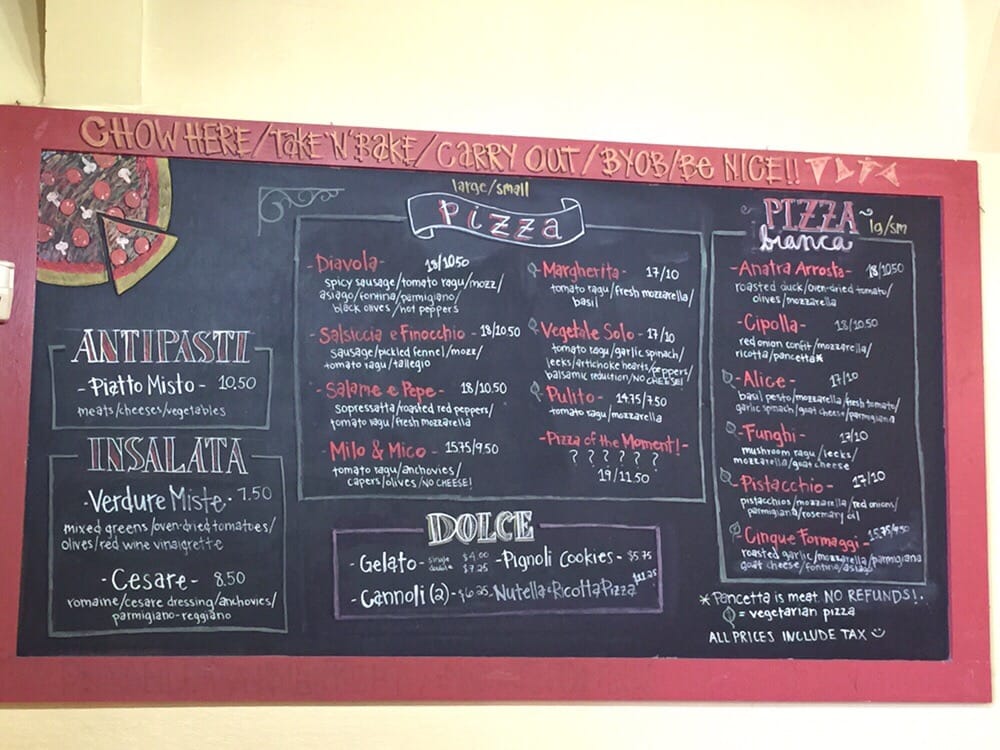 CHOW HERE/TAKE 'N' BAKE/CARRY OUT/BYOB/BE NICE!!
ANTIPASTI
-Piatto Misto- 10.50
meats/cheeses/vegetables
INSALATA
-Verdure Miste- 7.50
mixed greens/oven-dried tomatoes/
olives/red wine vinaigrette
-Cesare- 8.50
romaine/cesare dressing/anchovies/
parmigiano-reggiano
large/small
PIZZA
-Diavola- 18/10.50
spicy sausage/tomato ragu/mozz/
asiago/fontina/parmigiano/
black olives/hot peppers
-Salsiccia e Finocchio- 18/10.50
sausage/pickled fennel/mozz/
tomato ragu/tallegio
-Salame e Pepe- 18/10.50
sopressatta/roasted red peppers/
tomato ragu/fresh mozzarella
-Milo & Mico- 15.75/9.50
tomato ragu/anchovies/
capers/olives/NO CHEESE!
-Margherita- 17/10
tomato ragu/fresh mozzarella/
basil
-Vegetale Solo- 17/10
tomato ragu/garlic spinach/
leeks/artichoke hearts/peppers/
balsamic reduction/NO CHEESE!
-Pulito- 14.75/7.50
tomato ragu/mozzarella
-Pizza of the Moment!-
? ? ? ? ? ?
19/11.50
DOLCE
-Gelato- single $4.00
double $7.25
-Pignoli Cookies- $5.75
-Cannoli (2)- $6.25
Nutella & Ricotta Pizza
PIZZA
bianca
lg/sm
-Anatra Arrosta- 18/10.50
roasted duck/oven-dried tomato/
olives/mozzarella
-Cipolla- 18/10.50
red onion confit/mozzarella/
ricotta/pancetta*
-Alice- 17/10
basil pesto/mozzarella/fresh tomato/
garlic spinach/goat cheese/parmigiana
-Funghi- 17/10
mushroom ragu/leeks/
mozzarella/goat cheese
-Pistacchio- 17/10
pistachios/mozzarella/red onions/
parmigiana/rosemary oil
-Cinque Formaggi- 15.75/9.50
roasted garlic/mozzarella/parmigiana
goat cheese/fontina/asiago
*Pancetta is meat. NO REFUNDS!
= vegetarian pizza
ALL PRICES INCLUDE TAX